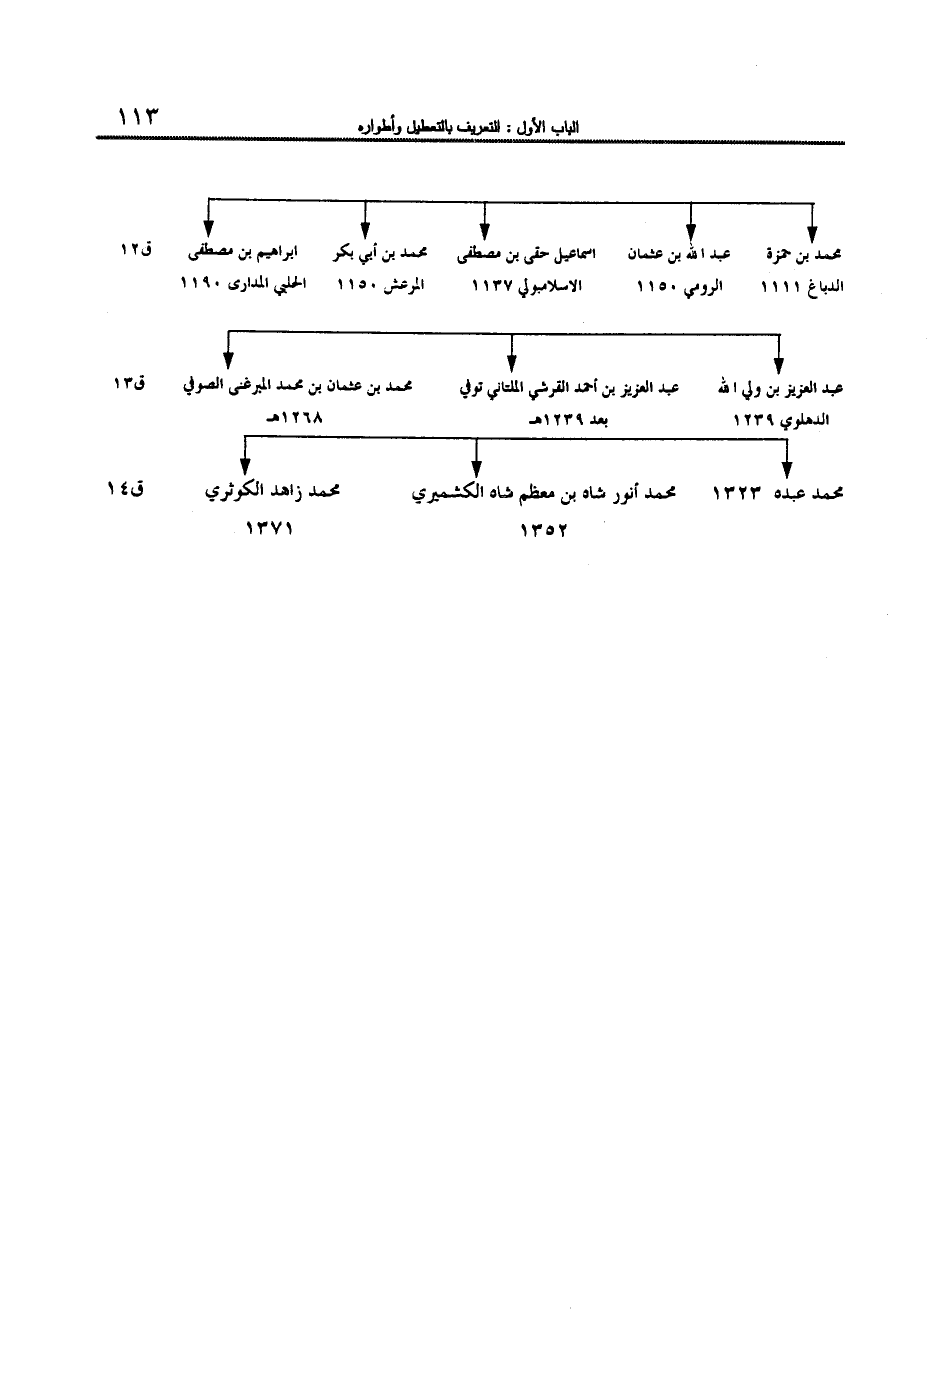 الباب الأول : التعريف بالتعطيل وأطواره ١١٣
محمد بن حمزة عبد الله بن عثمان اسماعيل حقى بن مصطفى محمد بن أبي بكر ابراهيم بن مصطفى ق١٢
الدباغ ١١١١ الرومي ١١٥٠ الاسلامبولي ١١٣٧ المرعش ١١٥٠ الحلبي المدارى ١١٩٠
عبد العزيز بن ولي الله عبد العزيز بن أحمد القرشي الملتاني توفي محمد بن عثمان بن محمد الميرغنى الصوفي ق١٣
الدهلوي ١٢٣٩ بعد ١٢٣٩هـ ١٢٦٨هـ
محمد عبده ١٣٢٣ محمد أنور شاه بن معظم شاه الكشميري محمد زاهد الكوثري ق١٤
١٣٥٢ ١٣٧١